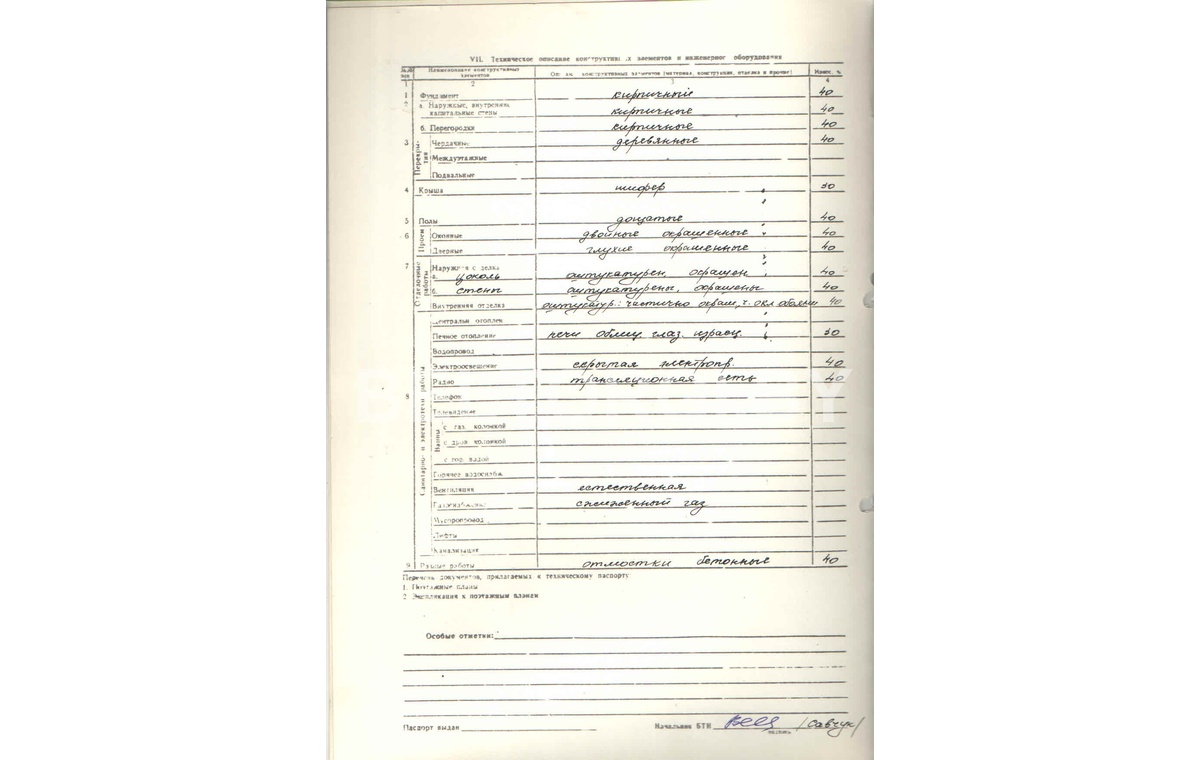 VII. Техническое описание конструктивных элементов и инженерного оборудования
Наименование конструктивных элементов конструктивных элементов (материал, конструкция, отделка и прочие) Износ %
1 2 3 4
1 Фундамент кирпичные 40
2 а. Наружные, внутренние капитальные стены кирпичные 40
б. Перегородки кирпичные 40
3 Перекрытия Чердачные деревянные 40
Междуэтажные
Подвальные
4 Крыша шифер 30
5 Полы дощатые 40
6 Проемы Оконные двойные окрашенные 40
Дверные глухие окрашенные 40
7 Отделочные работы Наружная отделка
а. цоколь оштукатурен, окрашен 40
б. стены оштукатурены, окрашены 40
Внутренняя отделка оштукатур.: частично окраш., ч. окл. обоями 40
8 Санитарно и электротехн работы Центральн отоплен
Печное отопление печи облиц. глаз. израсц. 30
Водопровод
Электроосвещение скрытая электропр. 40
Радио трансляционная сеть 40
Телефон
Телевидение
Ванны с газ колонкой
с дров колонкой
с гор. водой
Горячее водоснабж.
Вентиляция естественная
Газоснабжение сжиженный газ
Мусоропровод
Лифты
Канализация
9 Разные работы отмостки бетонные 40
Перечень документов, прилагаемых к техническому паспорту
1. Поэтажные планы
2. Экспликация к поэтажным планам
Особые отметки:
Паспорт выдан Начальник БТИ /Савчук/
подпись